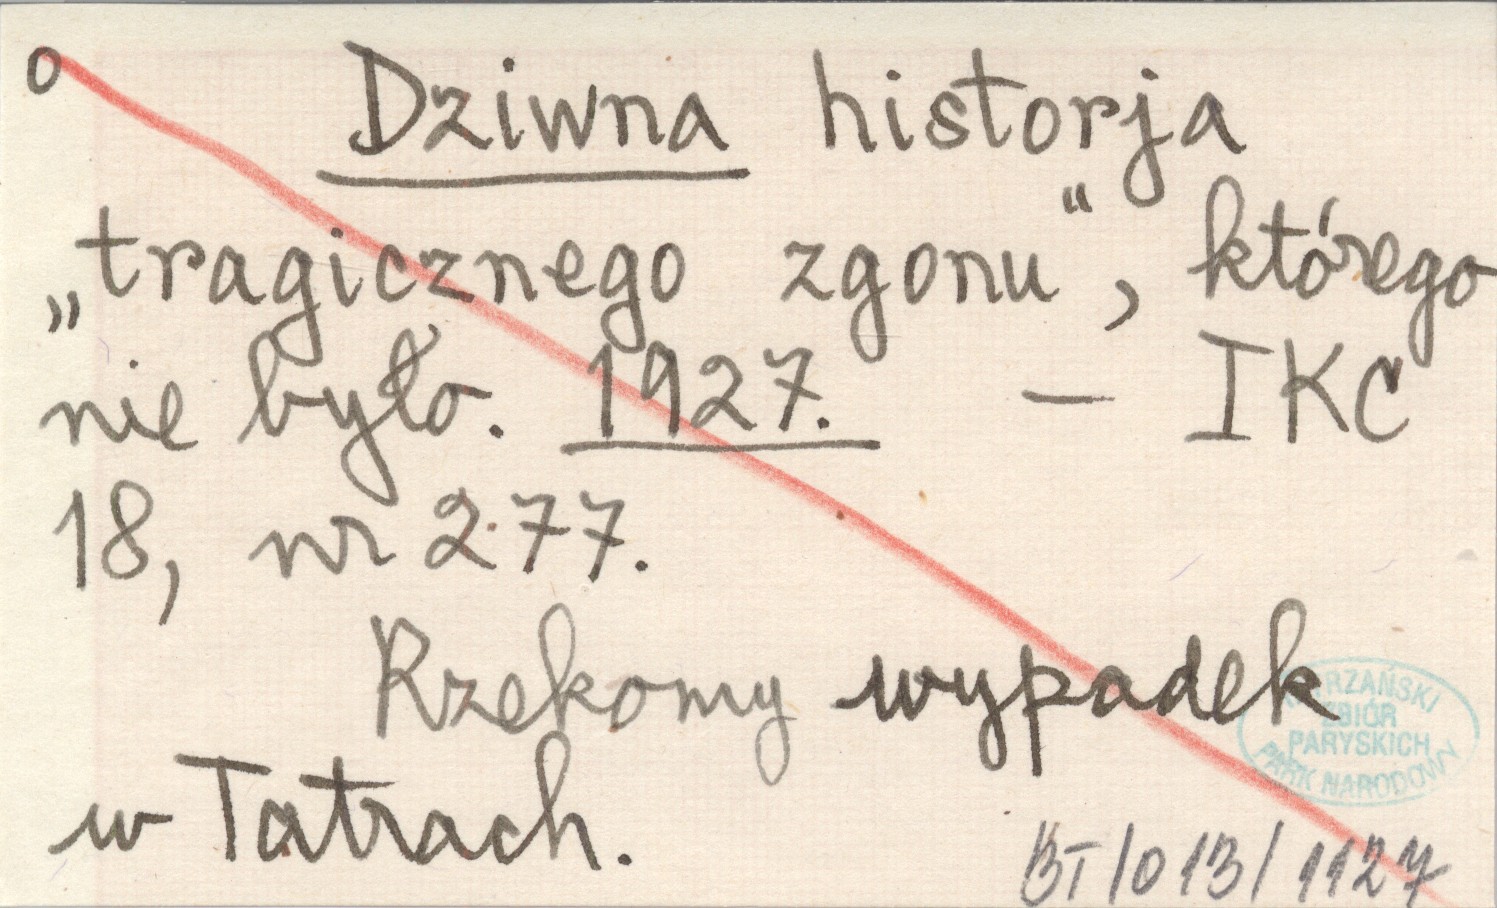 o Dziwna historja
„tragicznego zgonu“, którego
nie było. 1927. — IKC
18, nr 277.
Rzekomy wypadek
w Tatrach.
TATRZAŃSKI
ZBIÓR
PARYSKICH
PARK NARODOWY
BT/013/1127